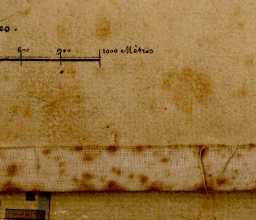 600 900 1000 Mètres